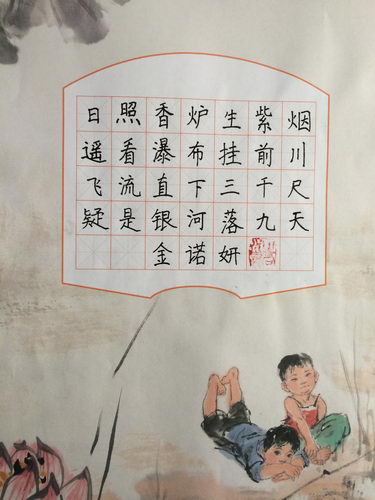 日照香炉生紫烟
遥看瀑布挂前川
飞流直下三千尺
疑是银河落九天
金诺妍